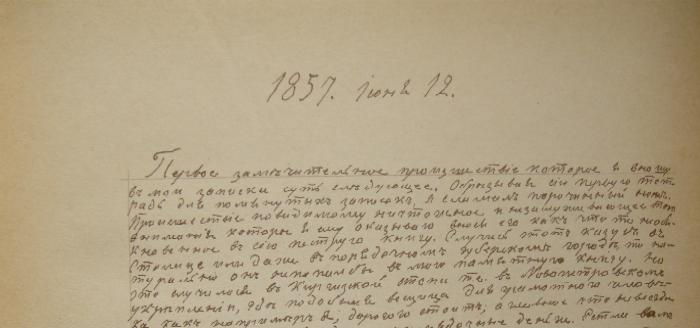 1857. Іюня 12.
Первое замѣчательное произшествіе которое я вношу
въ мои записки суть слѣдующее. Обрѣзывая сію первую тет-
радь для помянутыхъ записокъ, я сломалъ перочинный ножъ.
Происшествіе повидимому ничтожное и незаслуживающее того
вниманія которое я ему оказываю внося его какъ что то необы-
кновенное въ сію пеструю книгу. Случись этотъ казусъ въ
столицѣ или даже въ порядочномъ губернскомъ городѣ, то на-
турально онъ не попалъ бы въ мою памятную книгу. Но
это случилось въ Киргизской степи т.е. въ Новопетровскомъ
укрѣпленіи, гдѣ подобная вещица для грамотного чело-
вѣка какъ напримѣръ я, дорого стоитъ, а главное что невсегда